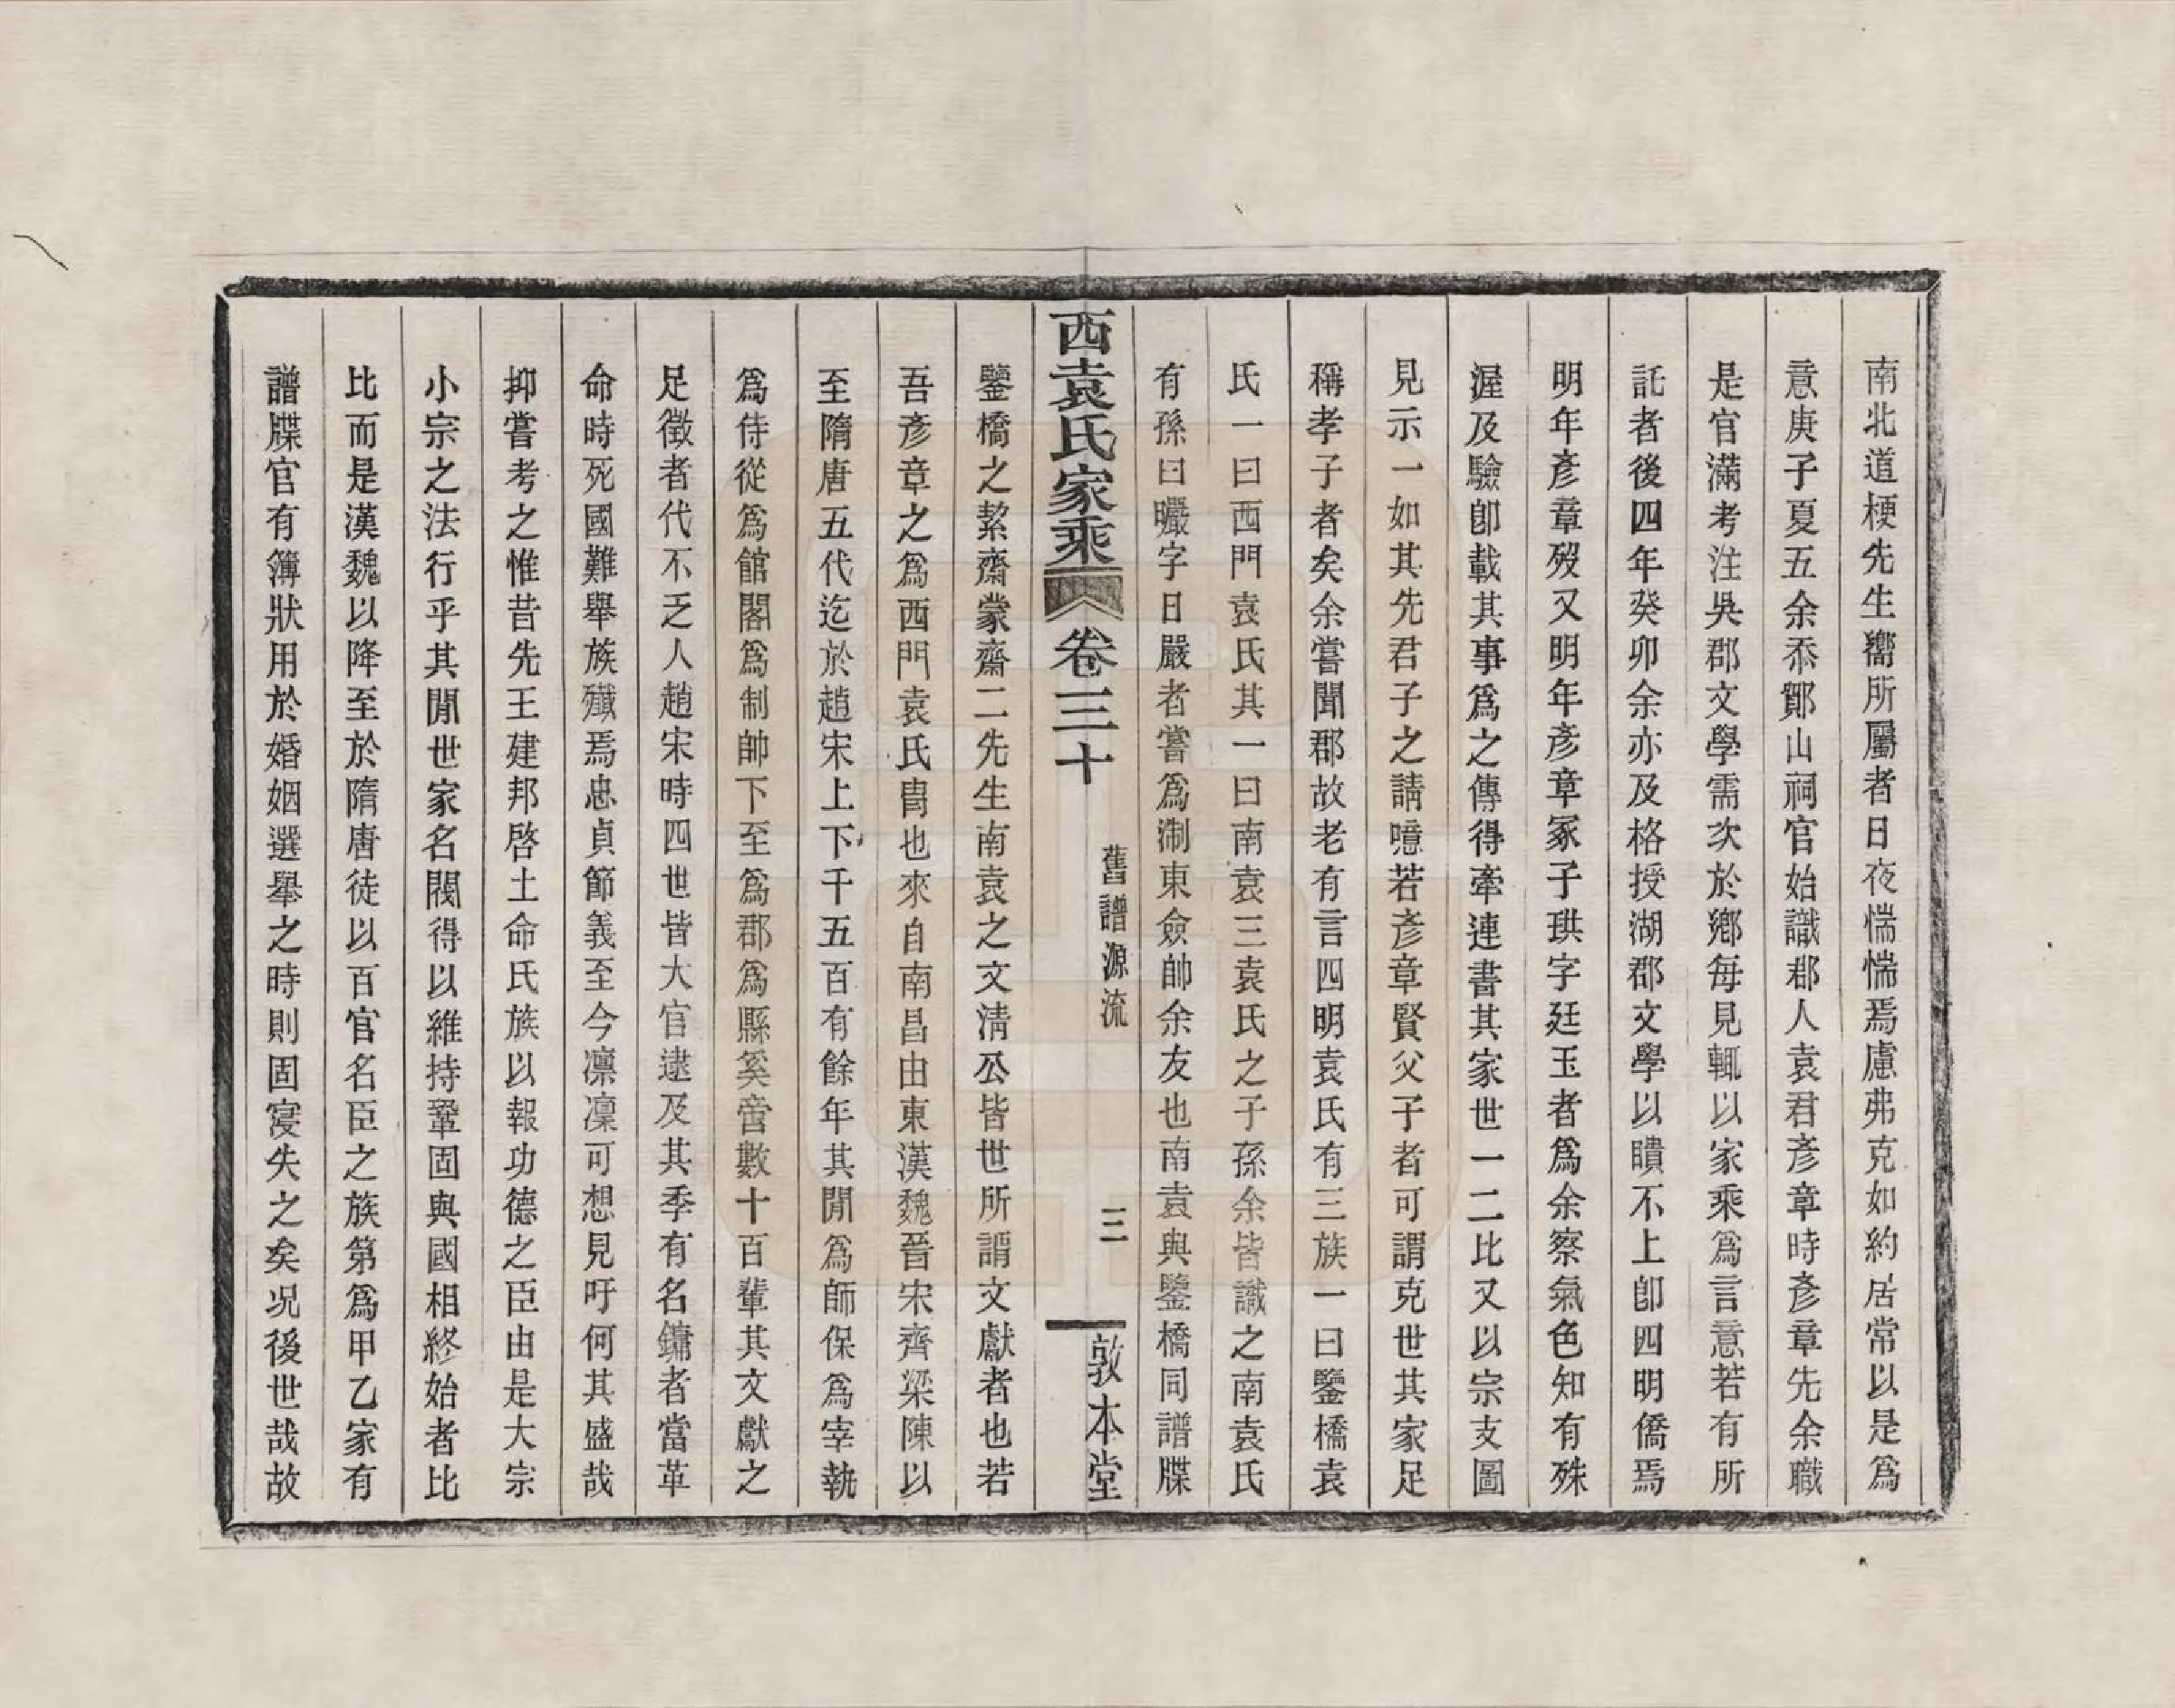 南北道梗先生嚮所屬者日夜惴惴焉慮弗克如約居常以是爲
意庚子夏五余忝鄮山祠官始識郡人袁君彥章時彥章先余職
是官滿考注吳郡文學需次於鄉每見輒以家乘爲言意若有所
託者後四年癸卯余亦及格授湖郡文學以瞶不上卽四明僑焉
明年彥章歿又明年彥章冢子珙字廷玉者爲余察氣色知有殊
渥及驗卽載其事爲之傳得牽連書其家世一二比又以宗支圖
見示一如其先君子之請噫若彥章賢父子者可謂克世其家足
稱孝子者矣余嘗聞郡故老有言四明袁氏有三族一曰鑒橋袁
氏一曰西門袁氏其一曰南袁三袁氏之子孫余皆識之南袁氏
有孫曰曮字日嚴者嘗爲淛東僉帥余友也南袁與鑒橋同譜牒
西袁氏家乘 卷三十 舊譜源流 三 敦本堂
鑒橋之絜齋蒙齋二先生南袁之文清公皆世所謂文獻者也若
吾彥章之爲西門袁氏冑也來自南昌由東漢魏晉宋齊梁陳以
至隋唐五代迄於趙宋上下千五百有餘年其閒爲師保爲宰執
爲侍從爲館閣爲制帥下至爲郡爲縣奚啻數十百輩其文獻之
足徵者代不乏人趙宋時四世皆大官逮及其季有名鏞者當革
命時死國難舉族殲焉忠貞節義至今凛凜可想見吁何其盛哉
抑嘗考之惟昔先王建邦啓土命氏族以報功德之臣由是大宗
小宗之法行乎其閒世家名閥得以維持鞏固與國相終始者比
比而是漢魏以降至於隋唐徒以百官名臣之族第爲甲乙家有
譜牒官有簿狀用於婚姻選舉之時則固寖失之矣况後世哉故